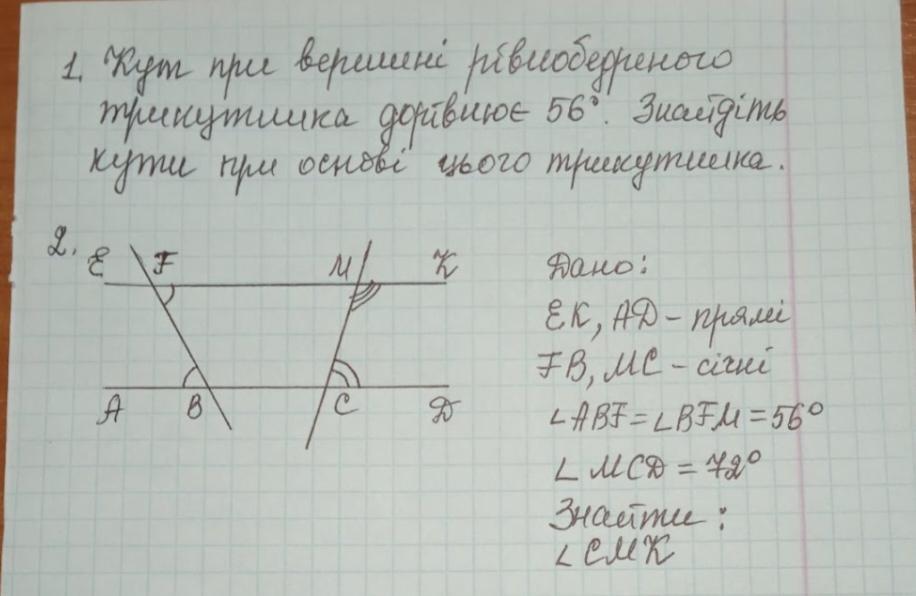 1. Кут при вершині рівнобедреного
трикутника дорівнює 56°. Знайдіть
кути при основі цього трикутника.
2.
E F M K
A B C D
Дано:
EK, AD - прямі
FB, MC - січні
∠ABF = ∠BFM = 56°
∠MCD = 72°
Знайти:
∠CMK